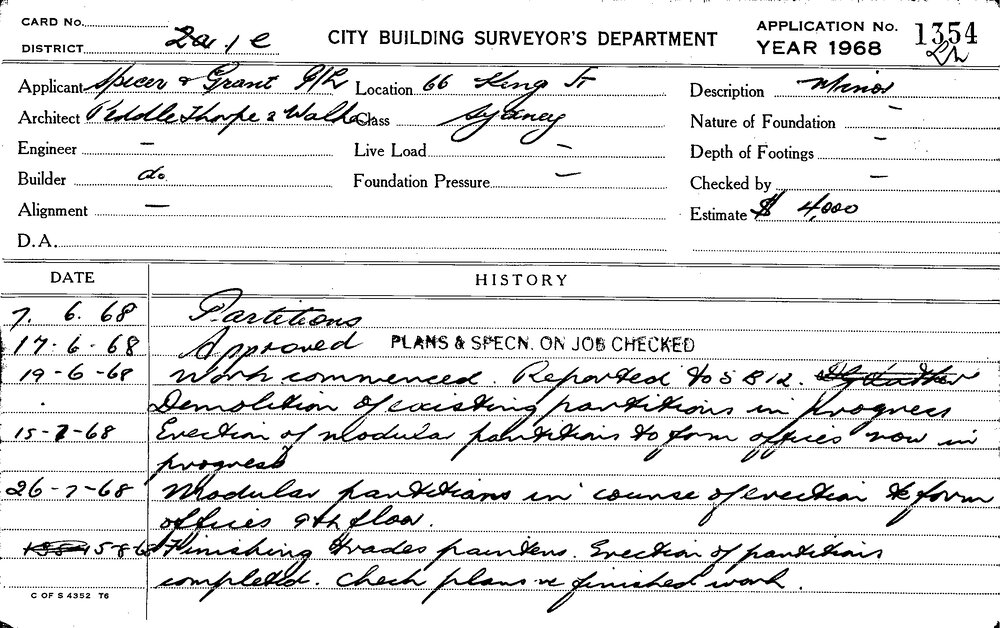 CARD No.
DISTRICT
CITY BUILDING SURVEYOR'S DEPARTMENT
APPLICATION No. 1354
YEAR 1968
Applicant Spicer & Grant P/L Location 66 King St Description Minor
Architect Peddle Thorpe & Walker Class Sydney Nature of Foundation –
Engineer – Live Load – Depth of Footings –
Builder do. Foundation Pressure – Checked by –
Alignment – Estimate $ 4,000
D.A.
DATE HISTORY
7. 6. 68 Partitions
17-6-68 Approved PLANS & SPECN. ON JOB CHECKED
19-6-68 Work commenced. Reported to
Demolition of existing partitions in progress
15-7-68 Erection of modular partitions to form offices now in
progress
26-7-68 Modular partitions in course of erection to form
offices 9th floor.
15-8-68 Finishing trades painters. Erection of partitions
completed. Check plans re finished work.
C OF S 4352 T6